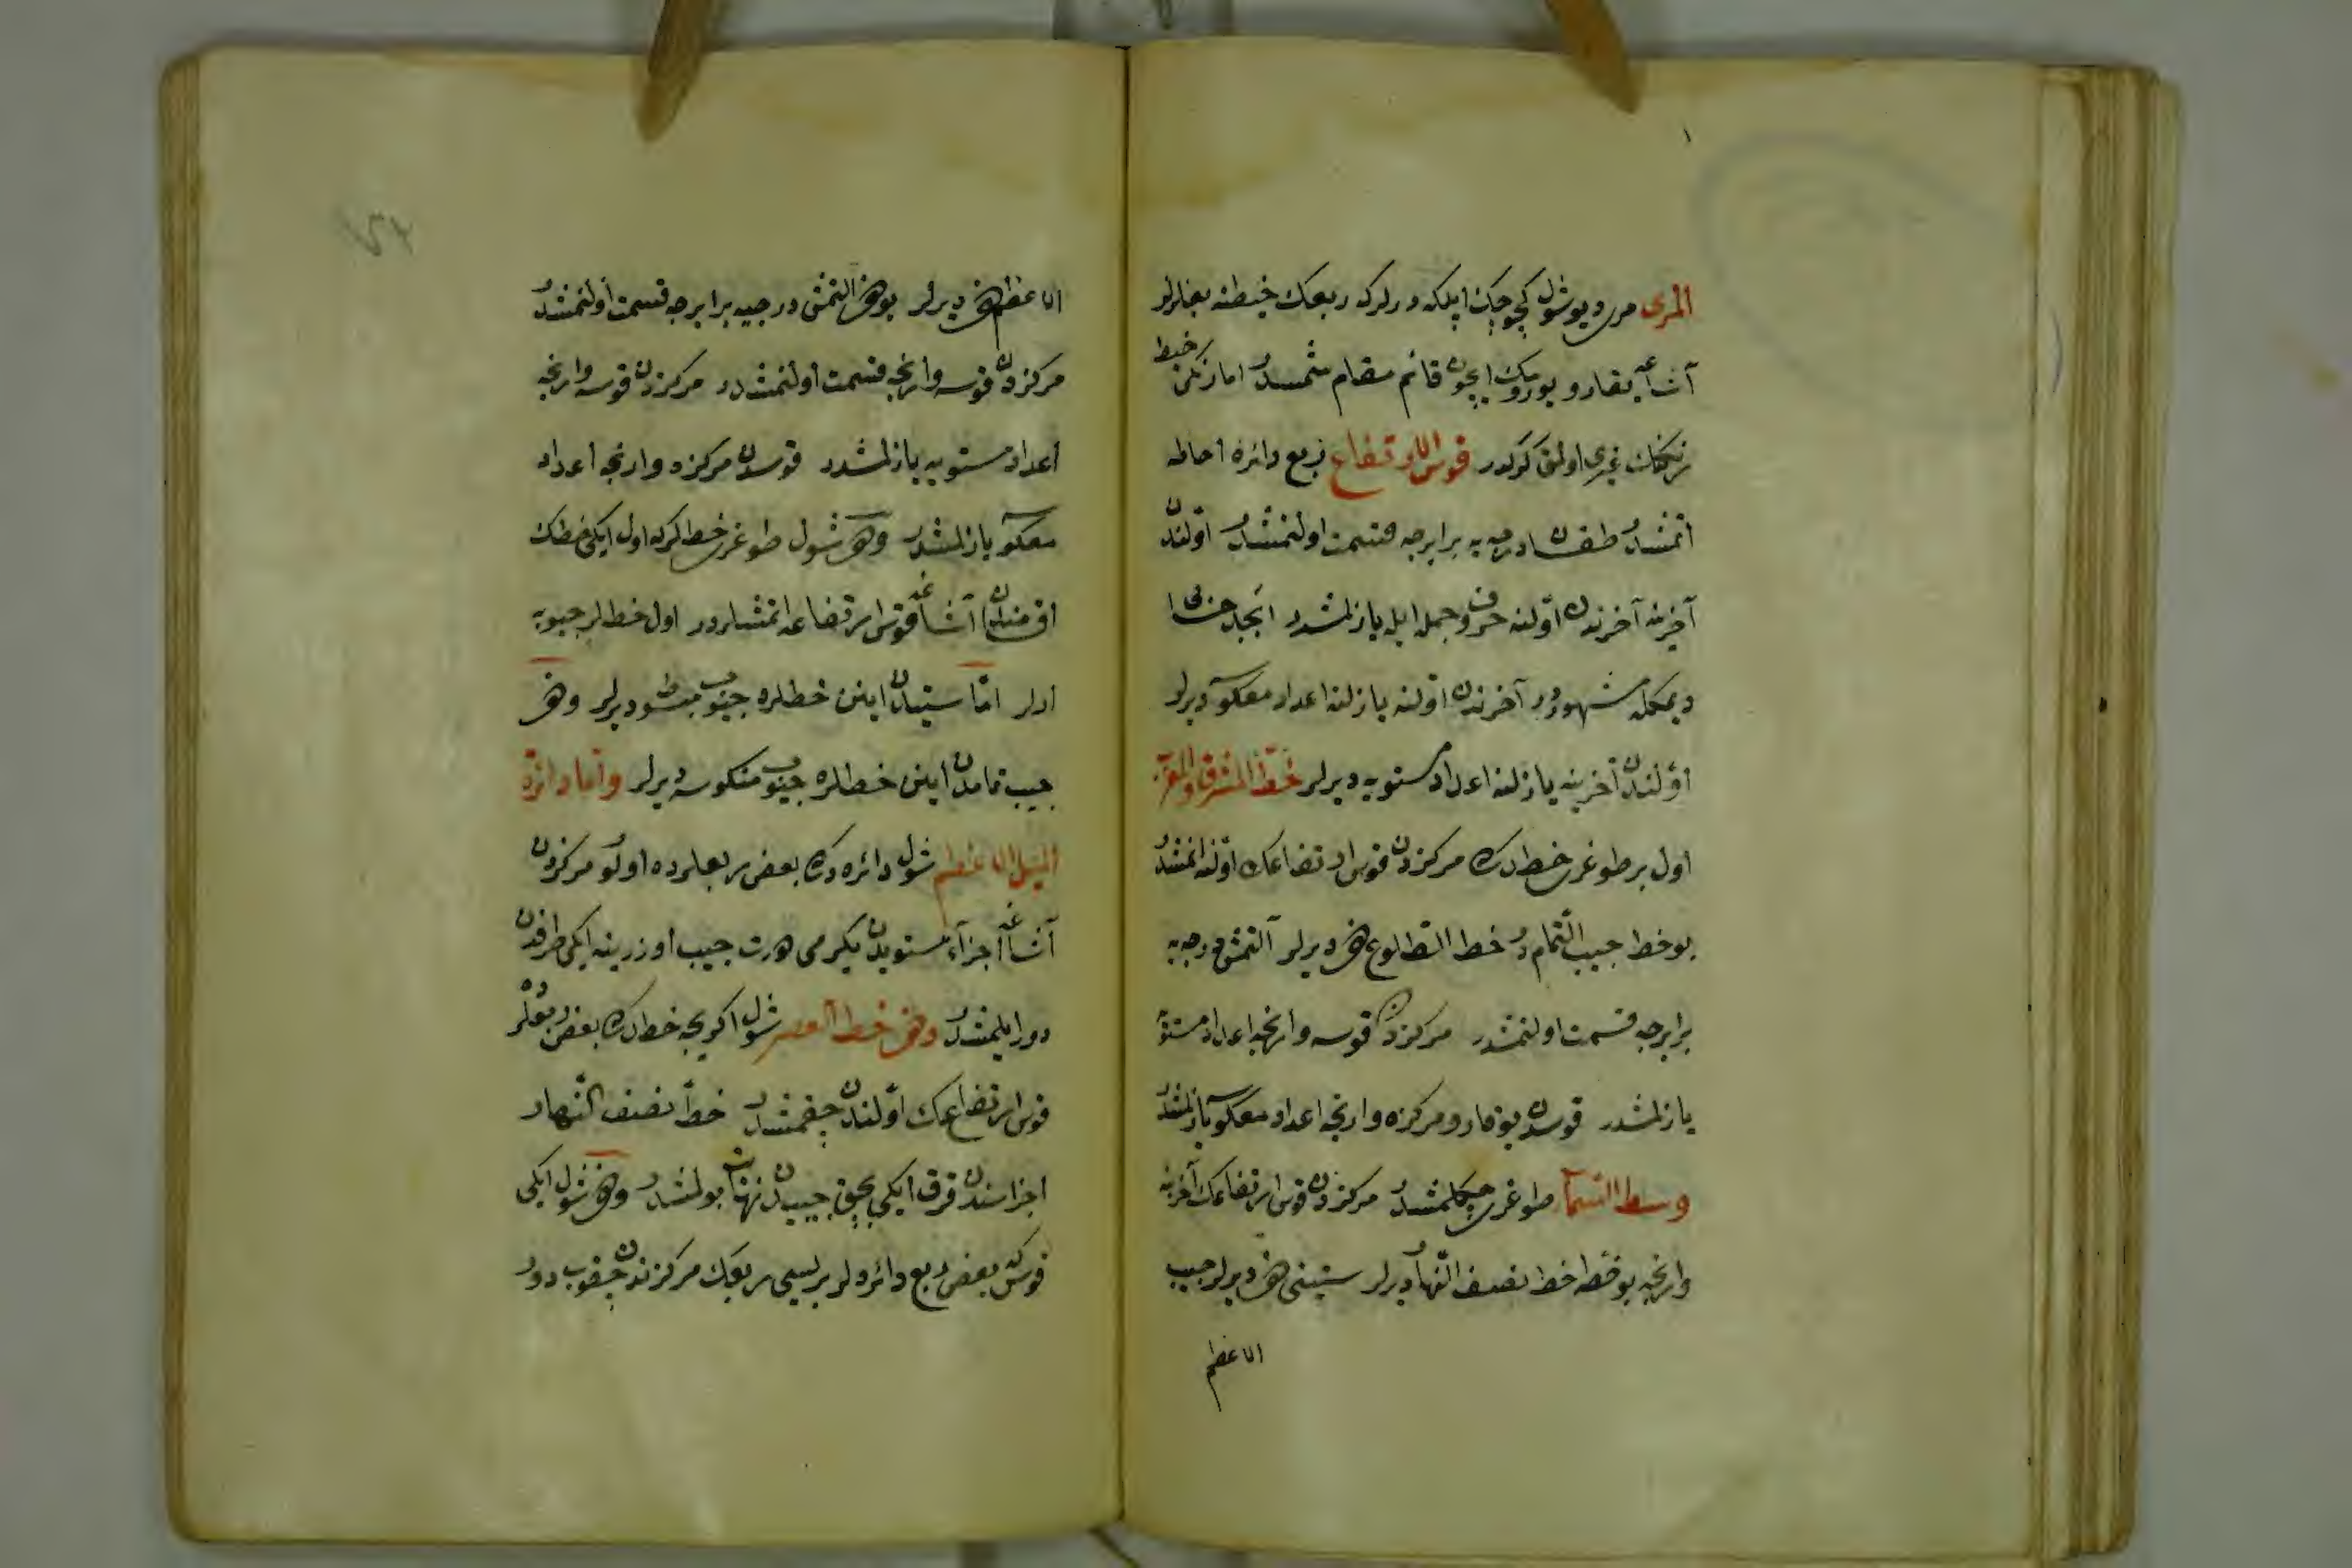 المرى مرى ديو شول كجوجك ايپلكه ديرلركه ربعك خيطنه بغلرلر
آشاغه يقارو يورومك ايچون قائم مقام شمسدر اما رنكى خيط
رنكندن غيرى اولمق كركدر قوس الارتفاع ربع دائره احاطه
اتمشدر طقسان درجه يه برابرجه قسمت اولنمشدر اولندن
آخرينه آخرندن اولنه حروف جمل ايله يازلمشدر ابجد حسابى
ديمكله مشهوردر آخرندن اولنه يازلنه اعداد معكوسه ديرلر
اولندن آخرينه يازلنه اعداد مستويه ديرلر خط المشرق والمغرب
اول بر طوغرى خطدركه مركزدن قوس ارتفاعك اولنه اتمشدر
بو خط جيب التمامدر خط الطلوع هم ديرلر آلتمش درجه يه
برابرجه قسمت اولنمشدر مركزدن قوسه وارنجه اعداد مستويه
يازلمشدر قوسدن يوقارو مركزه وارنجه اعداد معكوسه يازلمشدر
وسط السمآ طوغرى چكلمشدر مركزدن قوس ارتفاعك آخرينه
وارنجه بو خطه خط نصف النهار ديرلر ستينى هم ديرلر جيب
الاعظم
الاعظم هم ديرلر بو هم التمش درجيه برابرجه قسمت اولنمشدر
مركزدن قوسه وارنجه قسمت اولنمشدر مركزدن قوسه وارنجه
اعداد مستويه يازلمشدر قوسدن مركزه وارنجه اعداد
معكوسه يازلمشدر وهم شول طوغرى خطلركه اول ايكى خطك
آشاغه قوس ارتفاعه اتمشلردر اول خطلر جيوبه
ديرلر اما ستيندن اينن خطلره جيوب مبسوط ديرلر وهم
جيب تمامدن اينن خطلره جيوب منكوسه ديرلر واما دائرة
الميل الاعظم شول دائره دركه بعض ربعلرده اولور مركزدن
آشاغه اجزآء مستويدن يكرمى درت جيب اوزرينه ايكى طرفدن
دور ايلمشدر وهم خط العصر شول اكريجه خطدركه بعض ربعلرده
قوس ارتفاعك اولندن چقمشدر خط نصف النهار
اجزاسندن قرق ايكى بچق جيبدن نهايت بولمشدر وهم شول ايكى
قوس كه بعض ربع دائره لر بريسى ربعك مركزندن چقوب دور